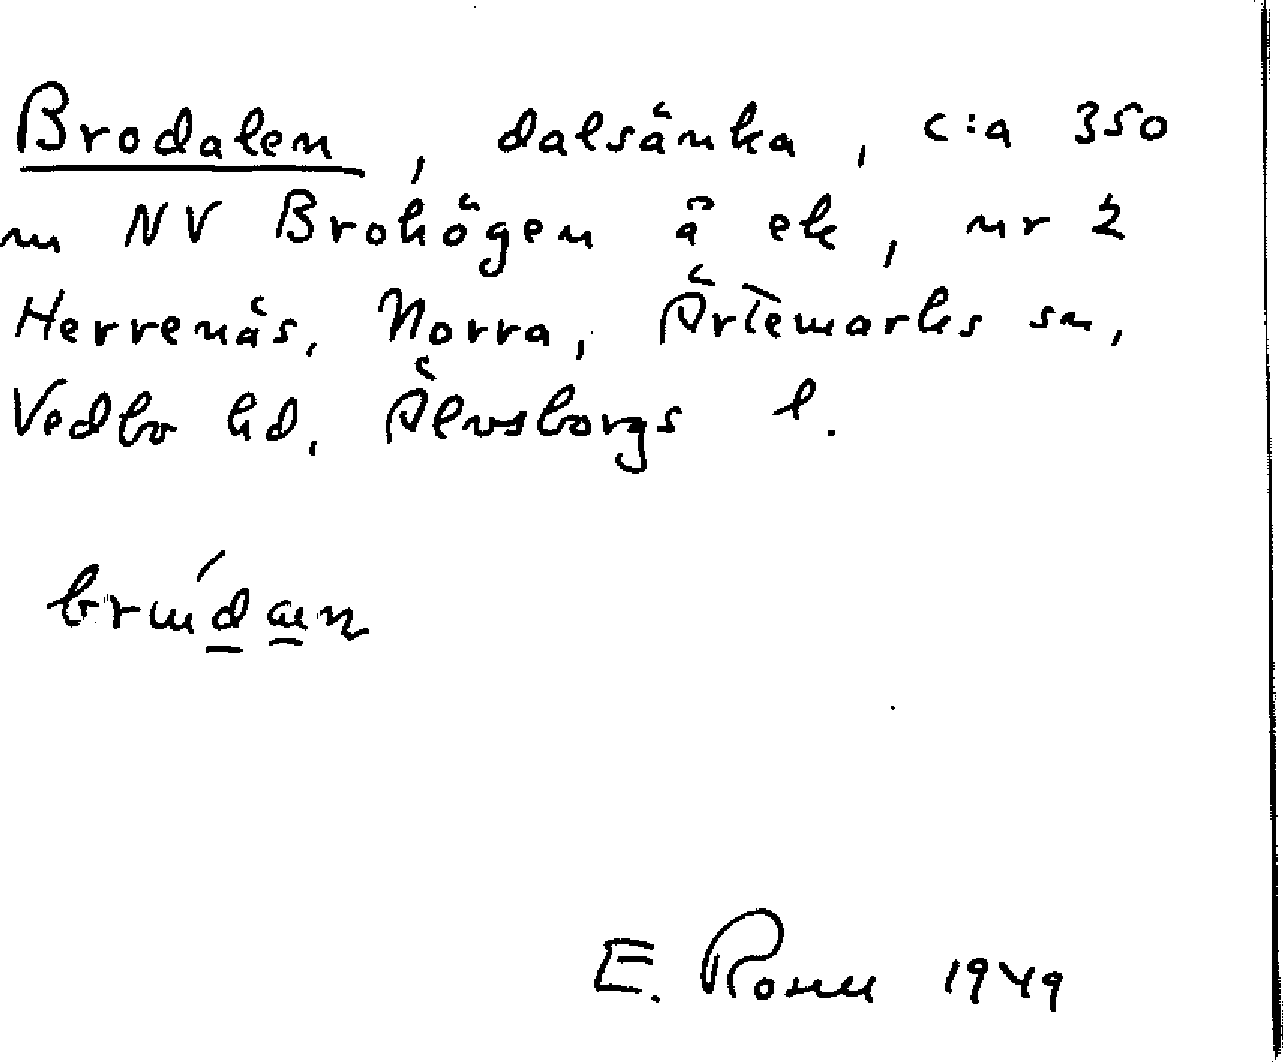 Brodalen, dalsänka, c:a 350
m NV Brohögen å ek, nr 2
Herrenäs, Norra, Ärtemarks sn,
Vedbo hd, Älvsborgs l.
E. 1949